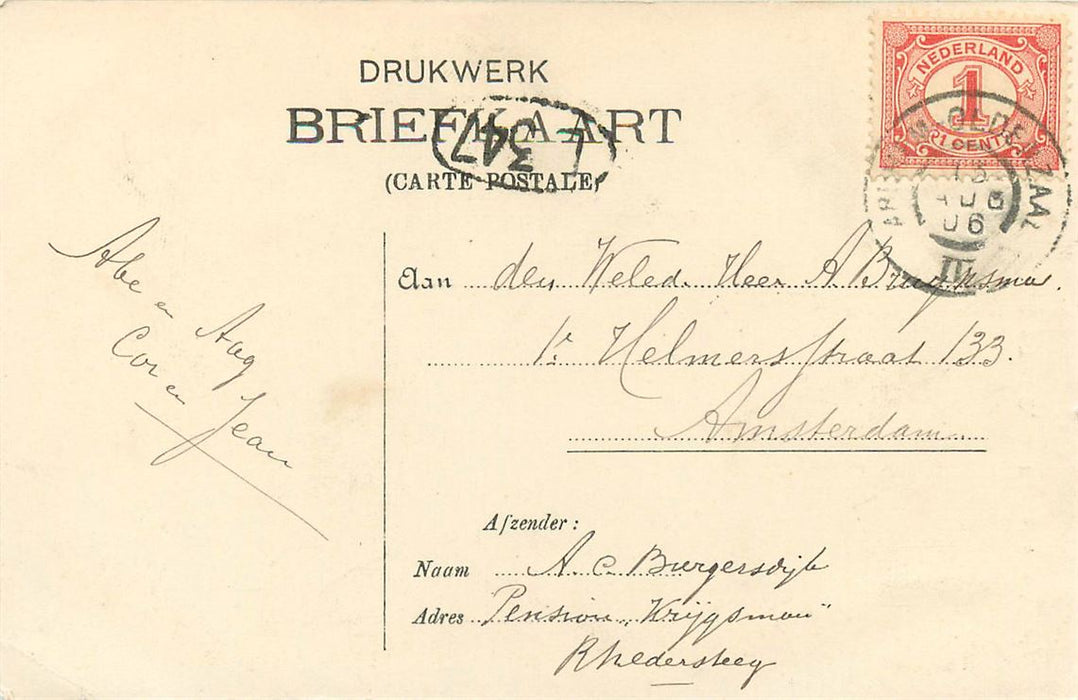 DRUKWERK
BRIEFKAART
(CARTE POSTALE)
347
NEDERLAND
1
1 CENT
OLDENZAAL
AUG
06
IV
Abe en Aag
Cor en Jean
Aan den Weled. Heer A Bruijnsma.
1e Helmersstraat 133.
Amsterdam
Afzender:
Naam A. C. Burgersdijk
Adres Pension „Krijgsman"
Rhedersteeg